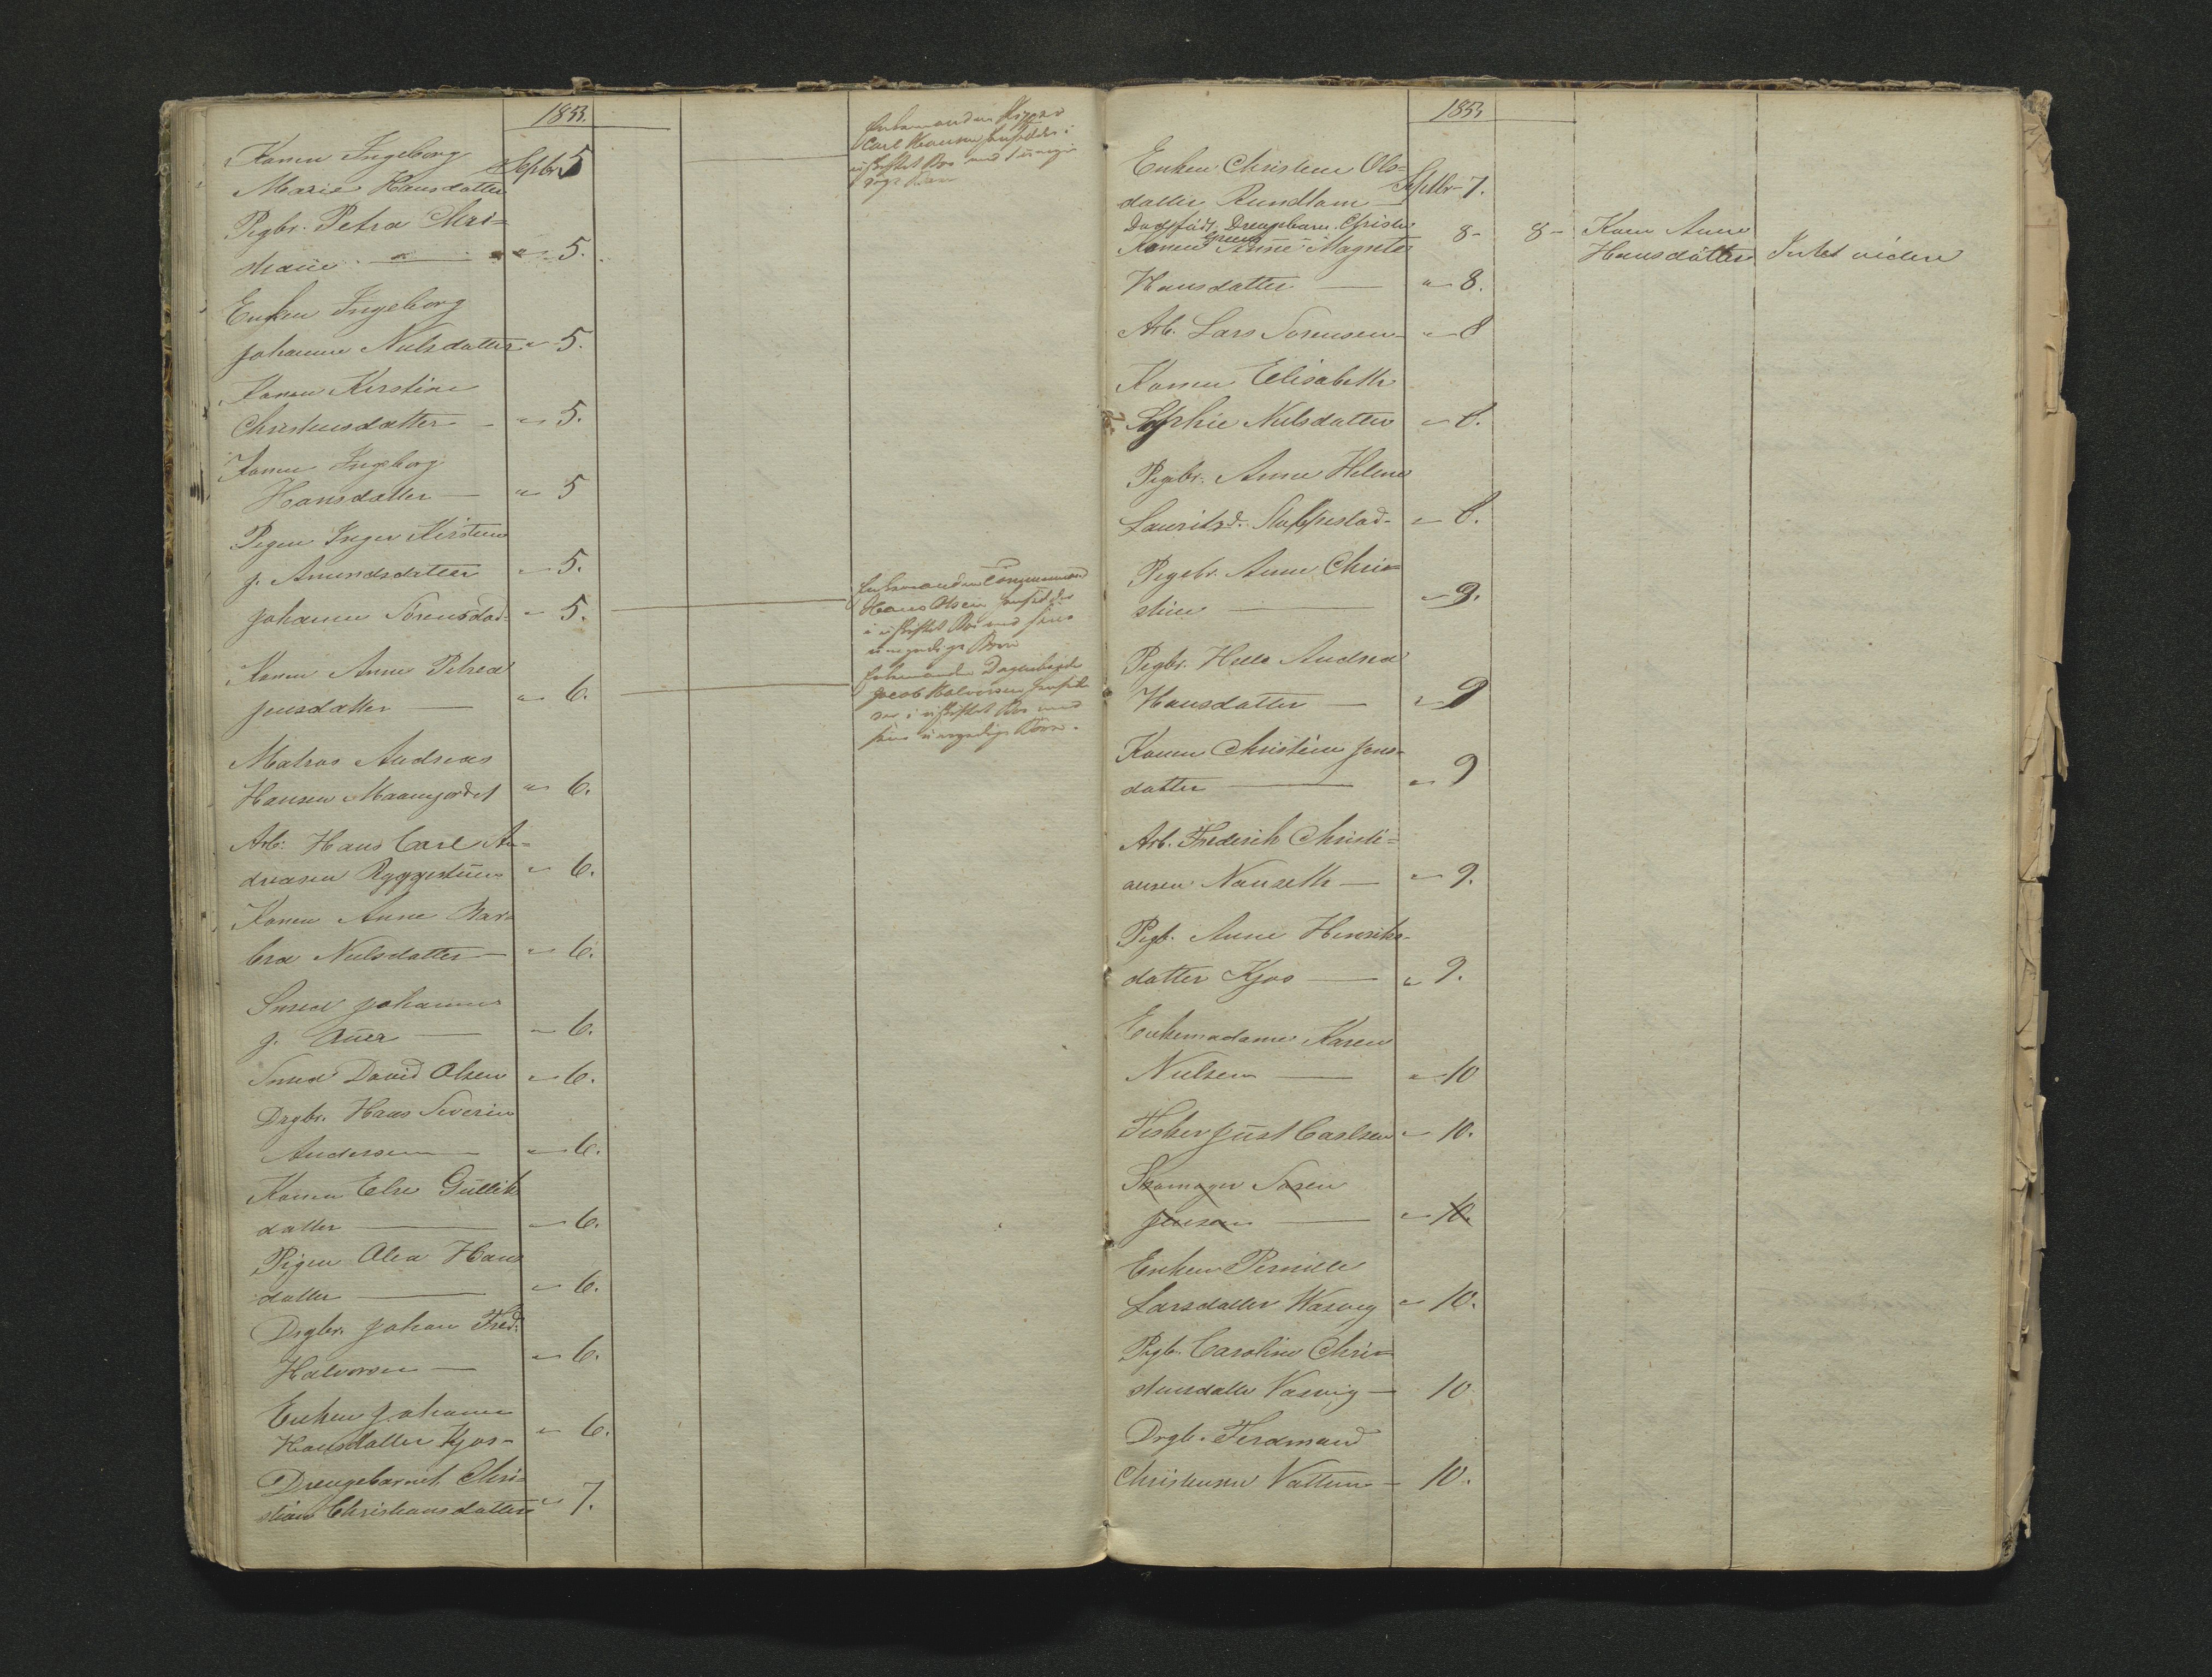 1853.
Konen Ingeborg
Marie Hansdatter Septbr 5
Pigbr. Petra Chri=
stiane — " 5.
Enken Ingeborg
Johanne Nielsdatter " 5.
Konen Kirstine
Christensdatter — " 5.
Konen Ingeborg
Hansdatter — " 5
Pigen Inger Kirstine
g. Amundsdatter " 5.
Johanne Sørensdad. " 5.
Konen Anne Petrea
Jensdatter — " 6.
Matros Andreas
Hansen Maamjordet " 6.
Arb. Hans Carl An=
dreasen " 6.
Konen Anne Bar=
bra Nielsdatter — " 6.
Johannes
g. — " 6.
David Olsen " 6.
Drgbr. Hans Severin
Andersen — " 6.
Konen Else Gullik
datter — " 6.
Pigen Olea Hans
datter — " 6.
Drgbr. Johan Fred:
Halvorsen — " 6.
Enken Johanne
Hansdatter Kjos — " 6.
Drengebarnet Chri=
stian Christiansdatter " 7.
Enkemanden
Carl Hansen hensidder i
uskiftet Bo med umyn
dige Børn
Enkemanden
Hans Olsen hensidder
i uskiftet Bo med sine
umyndige Børn
Enkemanden Dagarbeider
Jacob Halvorsen hensid
der i uskiftet Bo med
sine umyndige Børn.
1853
Enken Christine Ols=
datter Rundtom — Septbr 7.
Dødfødt Drengebarn Christen
8 - 8 - Kone Anne
Hansdatter Intet videre
Konen Anne Magrete
Hansdatter — " 8.
Arb. Lars Sørensen " 8
Konen Elisabeth
Sophie Nielsdatter " 8.
Pigebr. Anne Helene
Lauritzd. " 8.
Pigebr. Anne Chri=
stine — " 9.
Pigbr. Andrea
Hansdatter — " 9
Konen Christine Jens=
datter — " 9
Arb. Frederik Christi=
ansen Nanseth — " 9.
Pigb. Anne Henriks=
datter Kjos — " 9.
Enkemadame Karen
Nielsen — " 10
Fisker Just Carlsen " 10.
Skomager Søren
Jensen — " 10.
Enken Pernille
Larsdatter Wasvig " 10.
Pigb. Caroline Chri=
stensdatter Vasvig — 10
Drgb. Ferdinand
Christensen — 10.